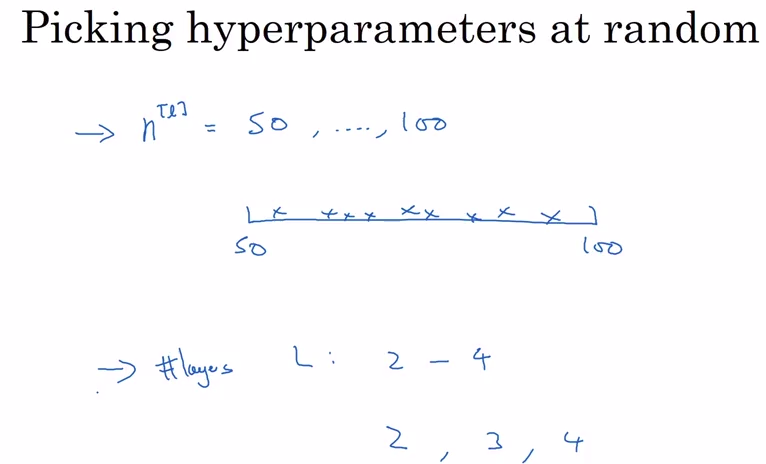 Picking hyperparameters at random
→ n^[l] = 50 , ...., 100
50 100
→ #layers L : 2 – 4
2 , 3 , 4